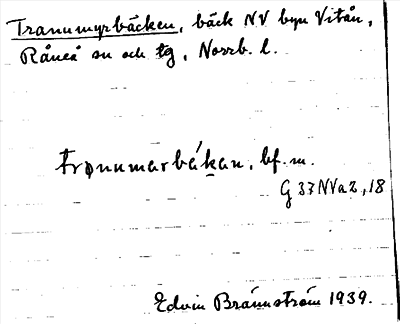 Tranumyrbäcken, bäck NV byn Vitån,
Råneå sn och tg, Norrb. l.
trọnumarbák̠an, bf. m.
G 37NVa2, 18
Edvin Brännström 1939.